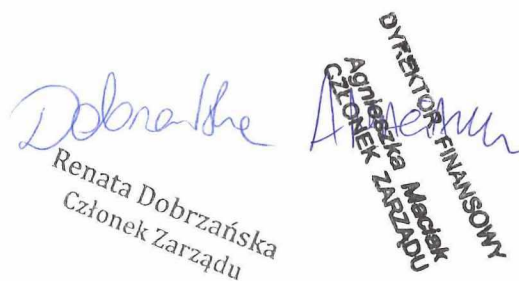 Renata Dobrzańska
Członek Zarządu
DYREKTOR FINANSOWY
Agnieszka Maciak
CZŁONEK ZARZĄDU